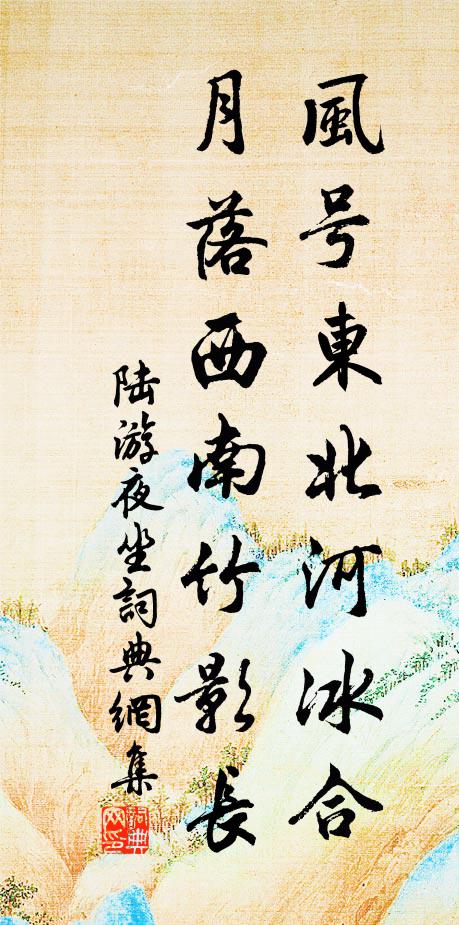 風号東北河冰合
月落西南竹影長
陸游夜坐詞典網集
詞典網印